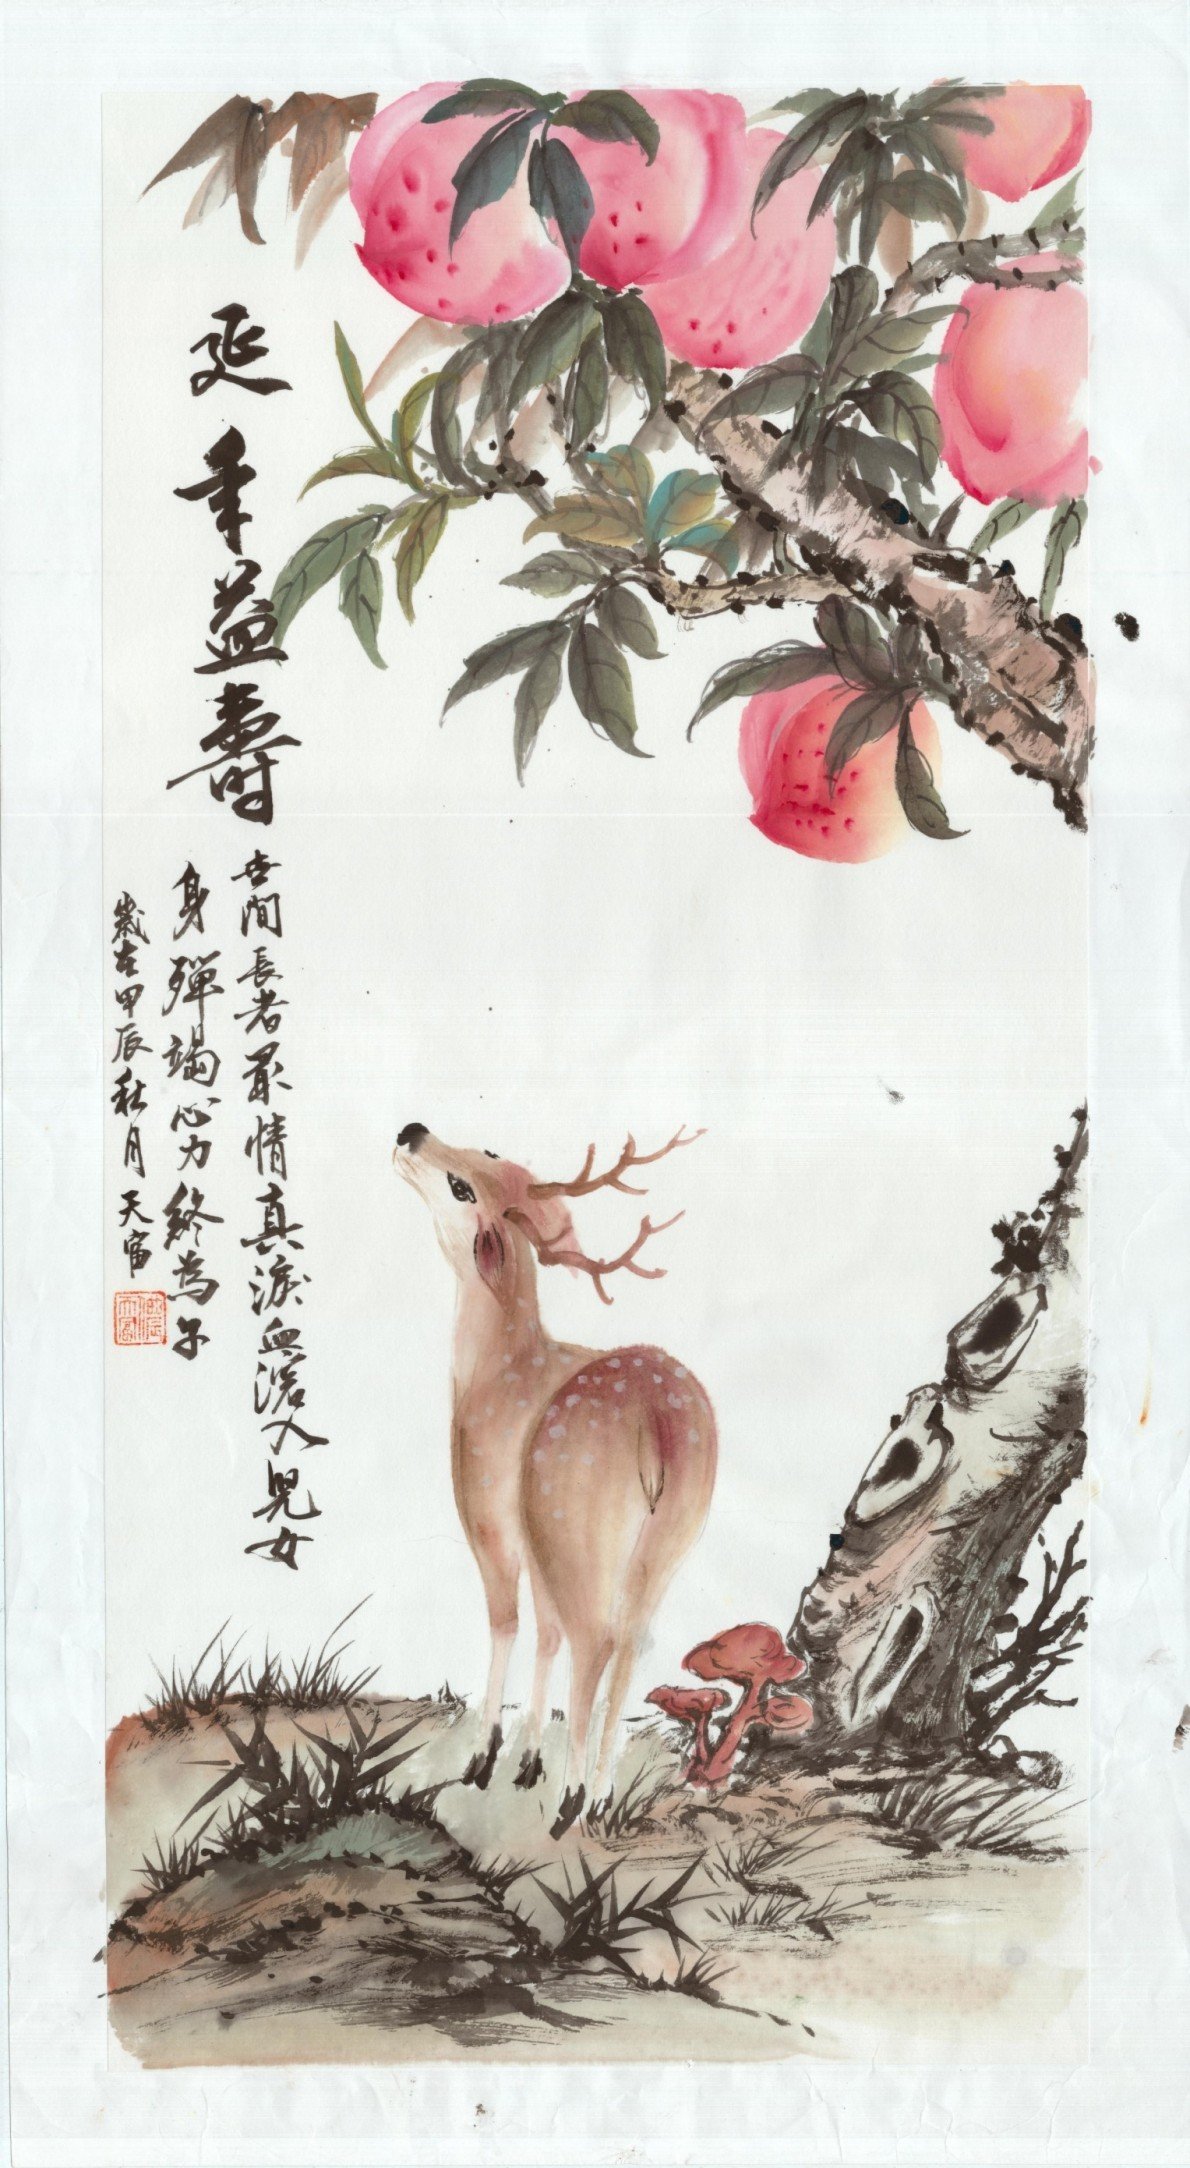 延年益壽
世間長者最情真淚血溶入兒女
身殫竭心力終為子
歲在甲辰秋月 天富